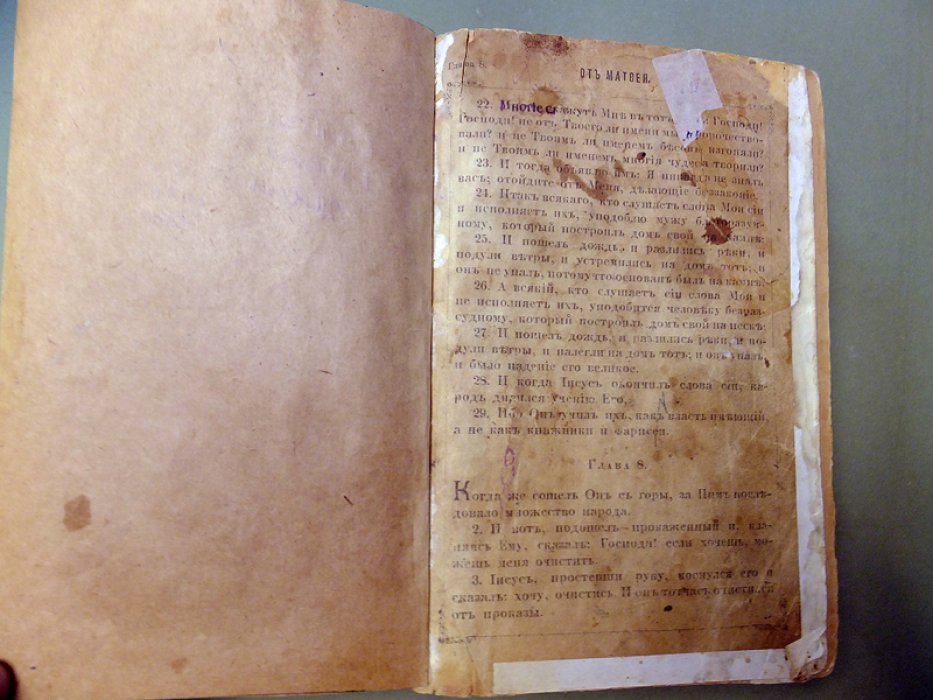 Глава 8.
ОТЪ МАТѲЕЯ.
22. Многіе скажутъ Мнѣ въ тотъ Господи!
Господи! не отъ Твоего ли имени мы пророчество-
вали? и не Твоимъ ли именемъ бѣсовъ изгоняли?
и не Твоимъ ли именемъ многія чудеса творили?
23. И тогда объявлю имъ: Я никогда не зналъ
васъ; отойдите отъ Меня, дѣлающіе беззаконіе.
24. Итакъ всякаго, кто слушаетъ слова Мои сіи
и исполняетъ ихъ, уподоблю мужу благоразум-
ному, который построилъ домъ свой на камнѣ:
25. И пошелъ дождь, и разлились рѣки, и
подули вѣтры, и устремились на домъ тотъ; и
онъ не упалъ, потому что основанъ былъ на камнѣ.
26. А всякій, кто слушаетъ сіи слова Мои и
не исполняетъ ихъ, уподобится человѣку безраз-
судному, который построилъ домъ свой на пескѣ:
27. И пошелъ дождь, и разлились рѣки, и по-
дули вѣтры, и налегли на домъ тотъ; и онъ упалъ,
и было паденіе его великое.
28. И когда Іисусъ окончилъ слова сіи, на-
родъ дивился ученію Его,
29. Ибо Онъ училъ ихъ, какъ власть имѣющій,
а не какъ книжники и фарисеи.
Глава 8.
Когда же сошелъ Онъ съ горы, за Нимъ послѣ-
довало множество народа.
2. И вотъ, подошелъ прокаженный и, кла-
няясь Ему, сказалъ: Господи! если хочешь, мо-
жешь меня очистить.
3. Іисусъ, простерши руку, коснулся его и
сказалъ: хочу, очистись. И онъ тотчасъ очистился
отъ проказы.